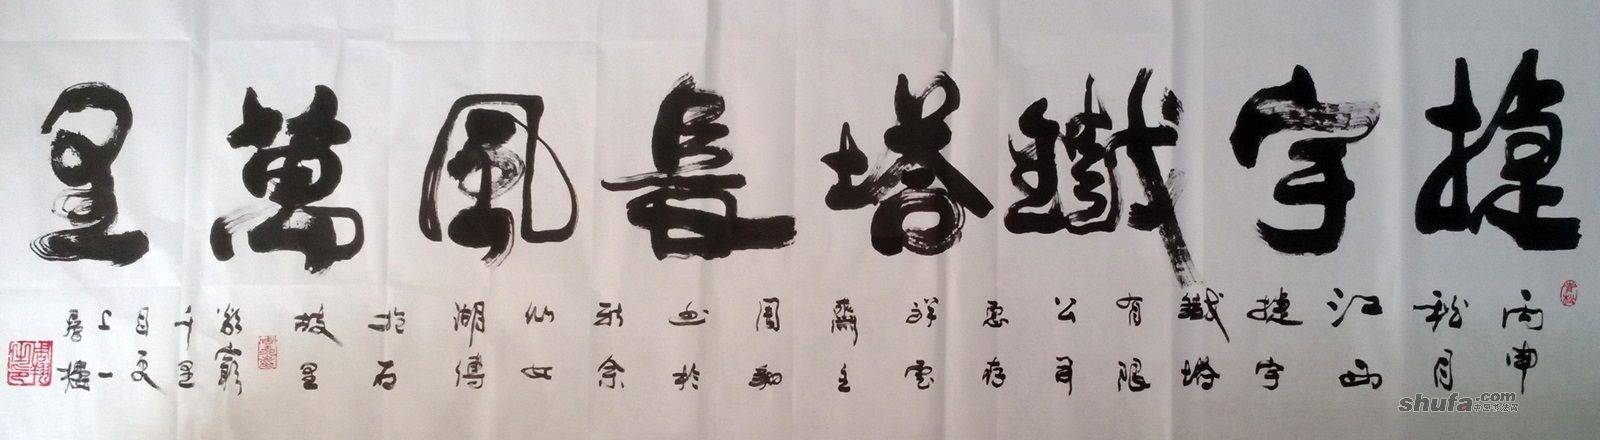 捷宇鐵塔長風萬里
丙申
秋月
江西
捷宇
鐵塔
有限
公司
惠存
祥雲
齋主
周
書於
新余
仙女
湖傅
抱石
故里
欲窮
千里
目更
上一
層樓
shufa.com
中国书法网